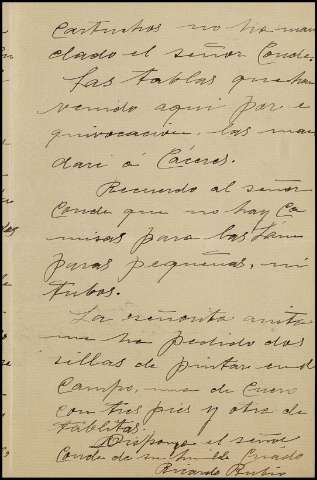 cartuchos no ha man
dado el señor Conde.
Las tablas que han
venido aqui por e
quivocacion, las man
daré á Cáceres.
Recuerdo al señor
Conde que no hay Ca
misas para las lám
paras pequeñas, ni
tubos.
La señorita anita
me ha pedido dos
sillas de pintar en el
Campo, una de Cuero
con tres pies y otra de
tablitas.
Disponga el señor
Conde de su humilde Criado
Ricardo Rubio